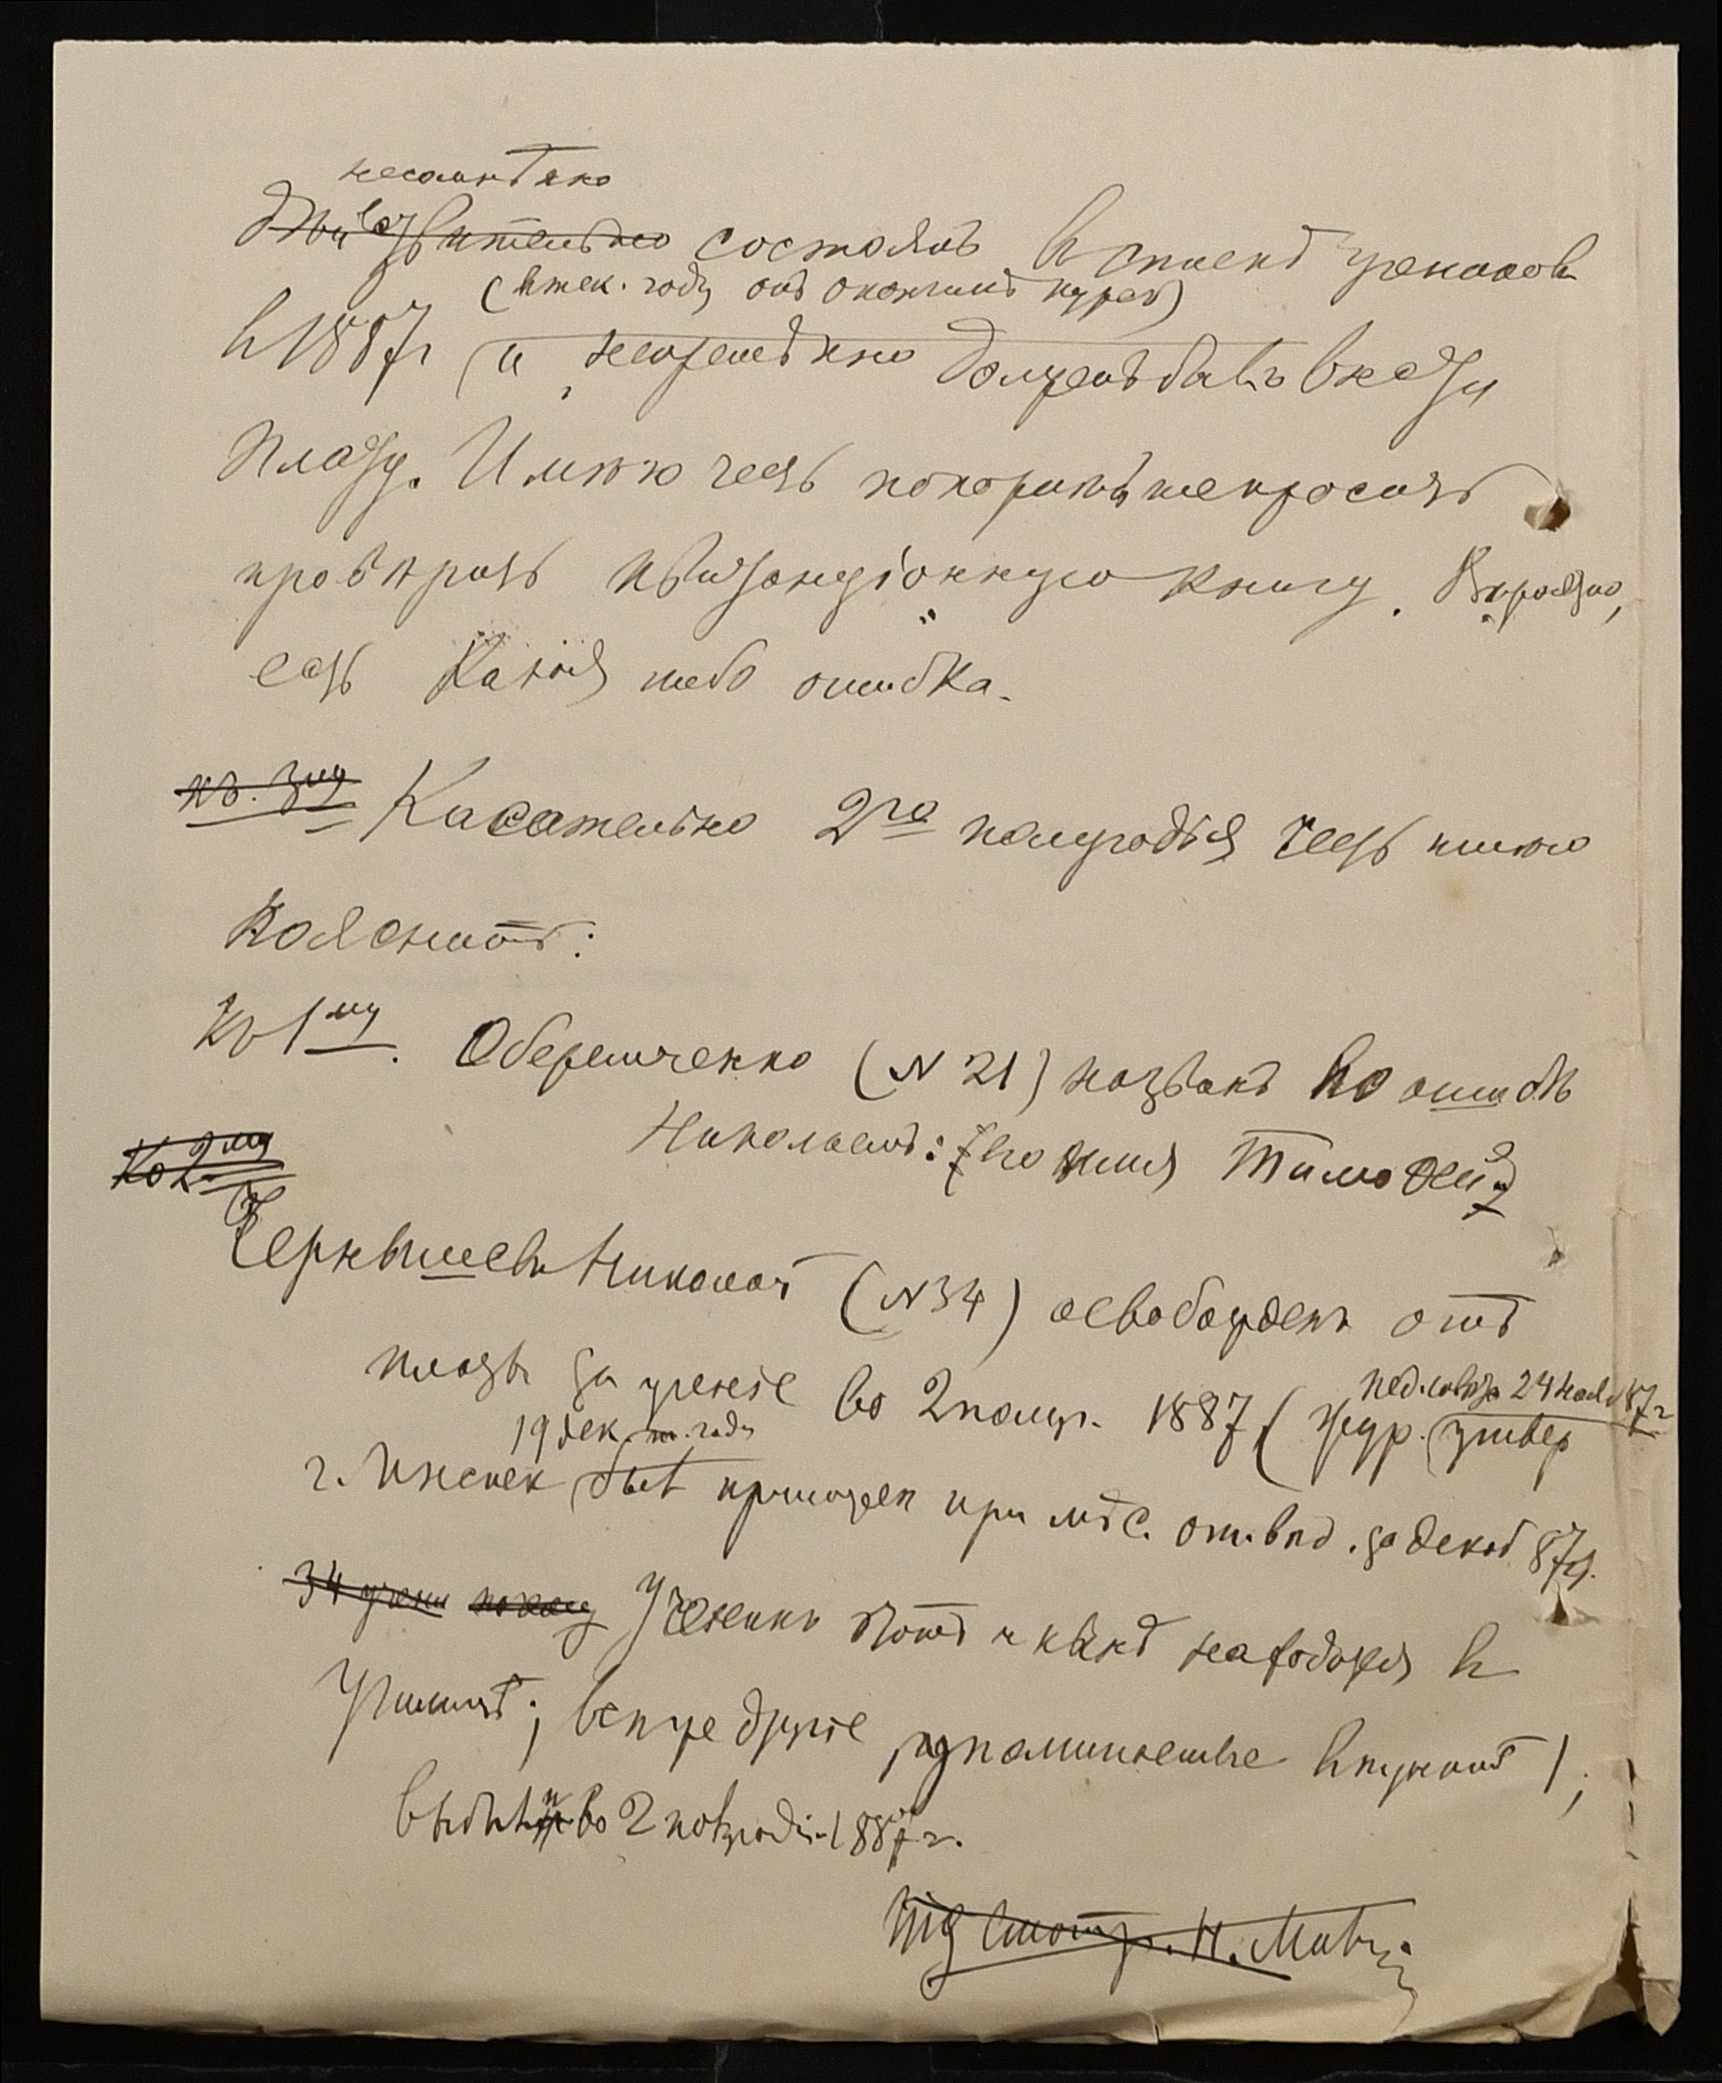 несомнѣнно
дѣйствительно состоялъ въ спискѣ учениковъ
(въ тек. году онъ окончилъ курсъ)
въ 1887 г и долженъ былъ внести
плату. Имѣю честь покорнѣйше просить
провѣрить квитанціонную книгу. Вѣроятно,
есть какая либо ошибка.
къ 3му Касательно 2го полугодія честь имѣю
пояснить:
Къ 1му. Оберемченко (№ 21) названъ по ошибкѣ
Николаемъ: его имя Тимофей
Ко 2му
Чернышевъ Николай (№ 34) освобожденъ отъ
платы за ученіе во 2 полуг. 1887 (жур. утвер
19 дек. т. года
г. Инспек былъ приложен при мѣс. отч. вѣд. за декаб 87 г.
34 учени Ученикъ этотъ и нынѣ находится въ
Училищѣ; всѣ же другіе, упомянутые въ пунктѣ 1,
выбыли во 2 полугодіи 1887 г.
Смотр. Н.